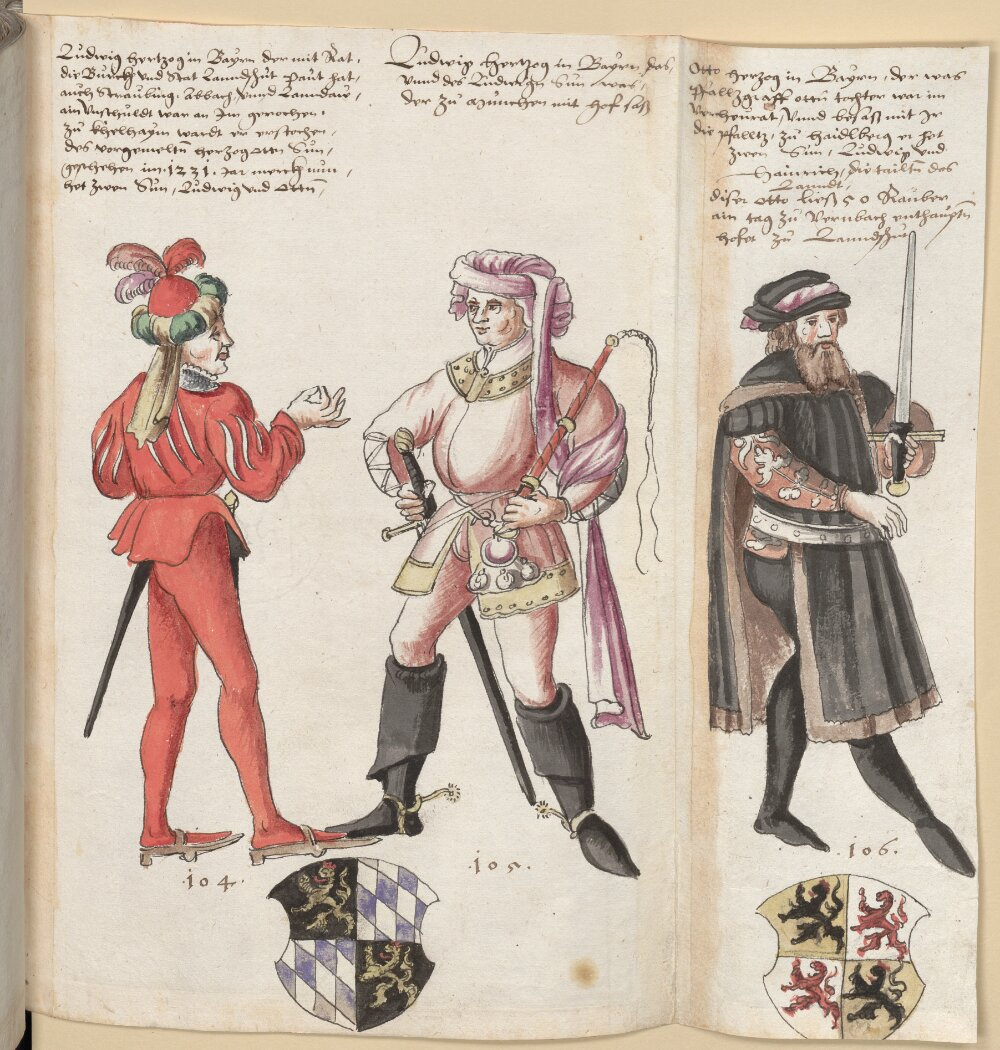 Ludwig Hertzog in Bayrn der mit Rat,
die Burckh vnd Stat Lanndshut paut hat,
auch Straubing, Abbach, vnnd Lanndaw,
ain Vnschuldt war an Im gerochen,
zu Khelhaym wardt er erstochen,
des vorgemeltn Herzog Otten Sun,
geschehen im 1231. Jar merckh nun,
het zwen Sun, Ludwig vnd Otten,
Ludwig Hertzog in Bayrn das,
vnnd des Ludwign Sun was,
der zu Munchen mit hof saß
Otto herzog in Bayrn, der was
Pfallzgraff otten tochter war im
verheurat, vnnd besaß mit Ir
die Pfalltz, zu Haidlberg er het
zwen Sun, Ludwig vnd
Hainrich, die tailtn das
Lanndt,
diser Otto ließ 50 Rauber
ain tag zu Vernbach enthauptn
hofet zu Lanndshut
.104.
.105.
.106.